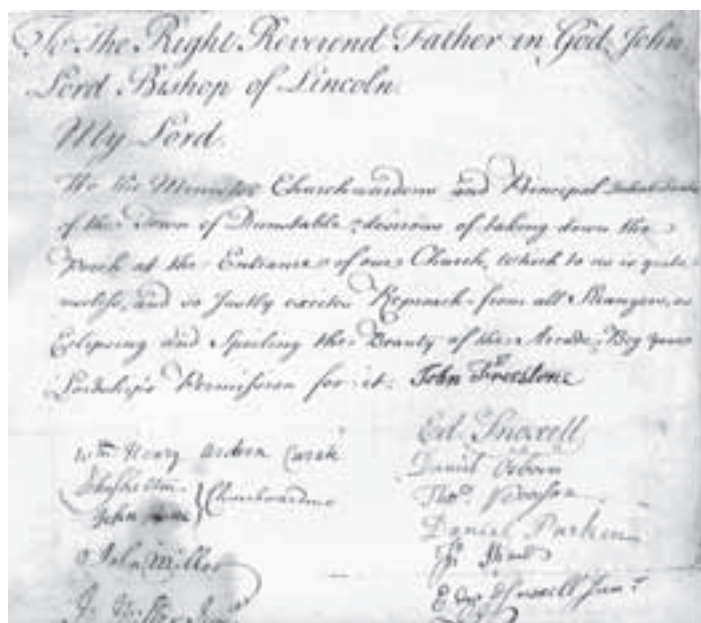 To The Right Reverend Father in God, John
Lord Bishop of Lincoln.
My Lord.
We the Minister Churchwardens and Principal Inhabitants
of the Town of Dunstable desirous of taking down the
Porch at the Entrance of our Church, which to us is quite
useless, and so justly excites Reproach from all Strangers, as
Eclipsing and Spoiling the Beauty of the Arcade, Beg your
Lordship's Permission for it.
John Freestone
Wm Henry Curate
Churchwardens
John
John Miller
Ed. Snoxell
Daniel Osborn
Thos.
Daniel Parkin
Snoxell Junr